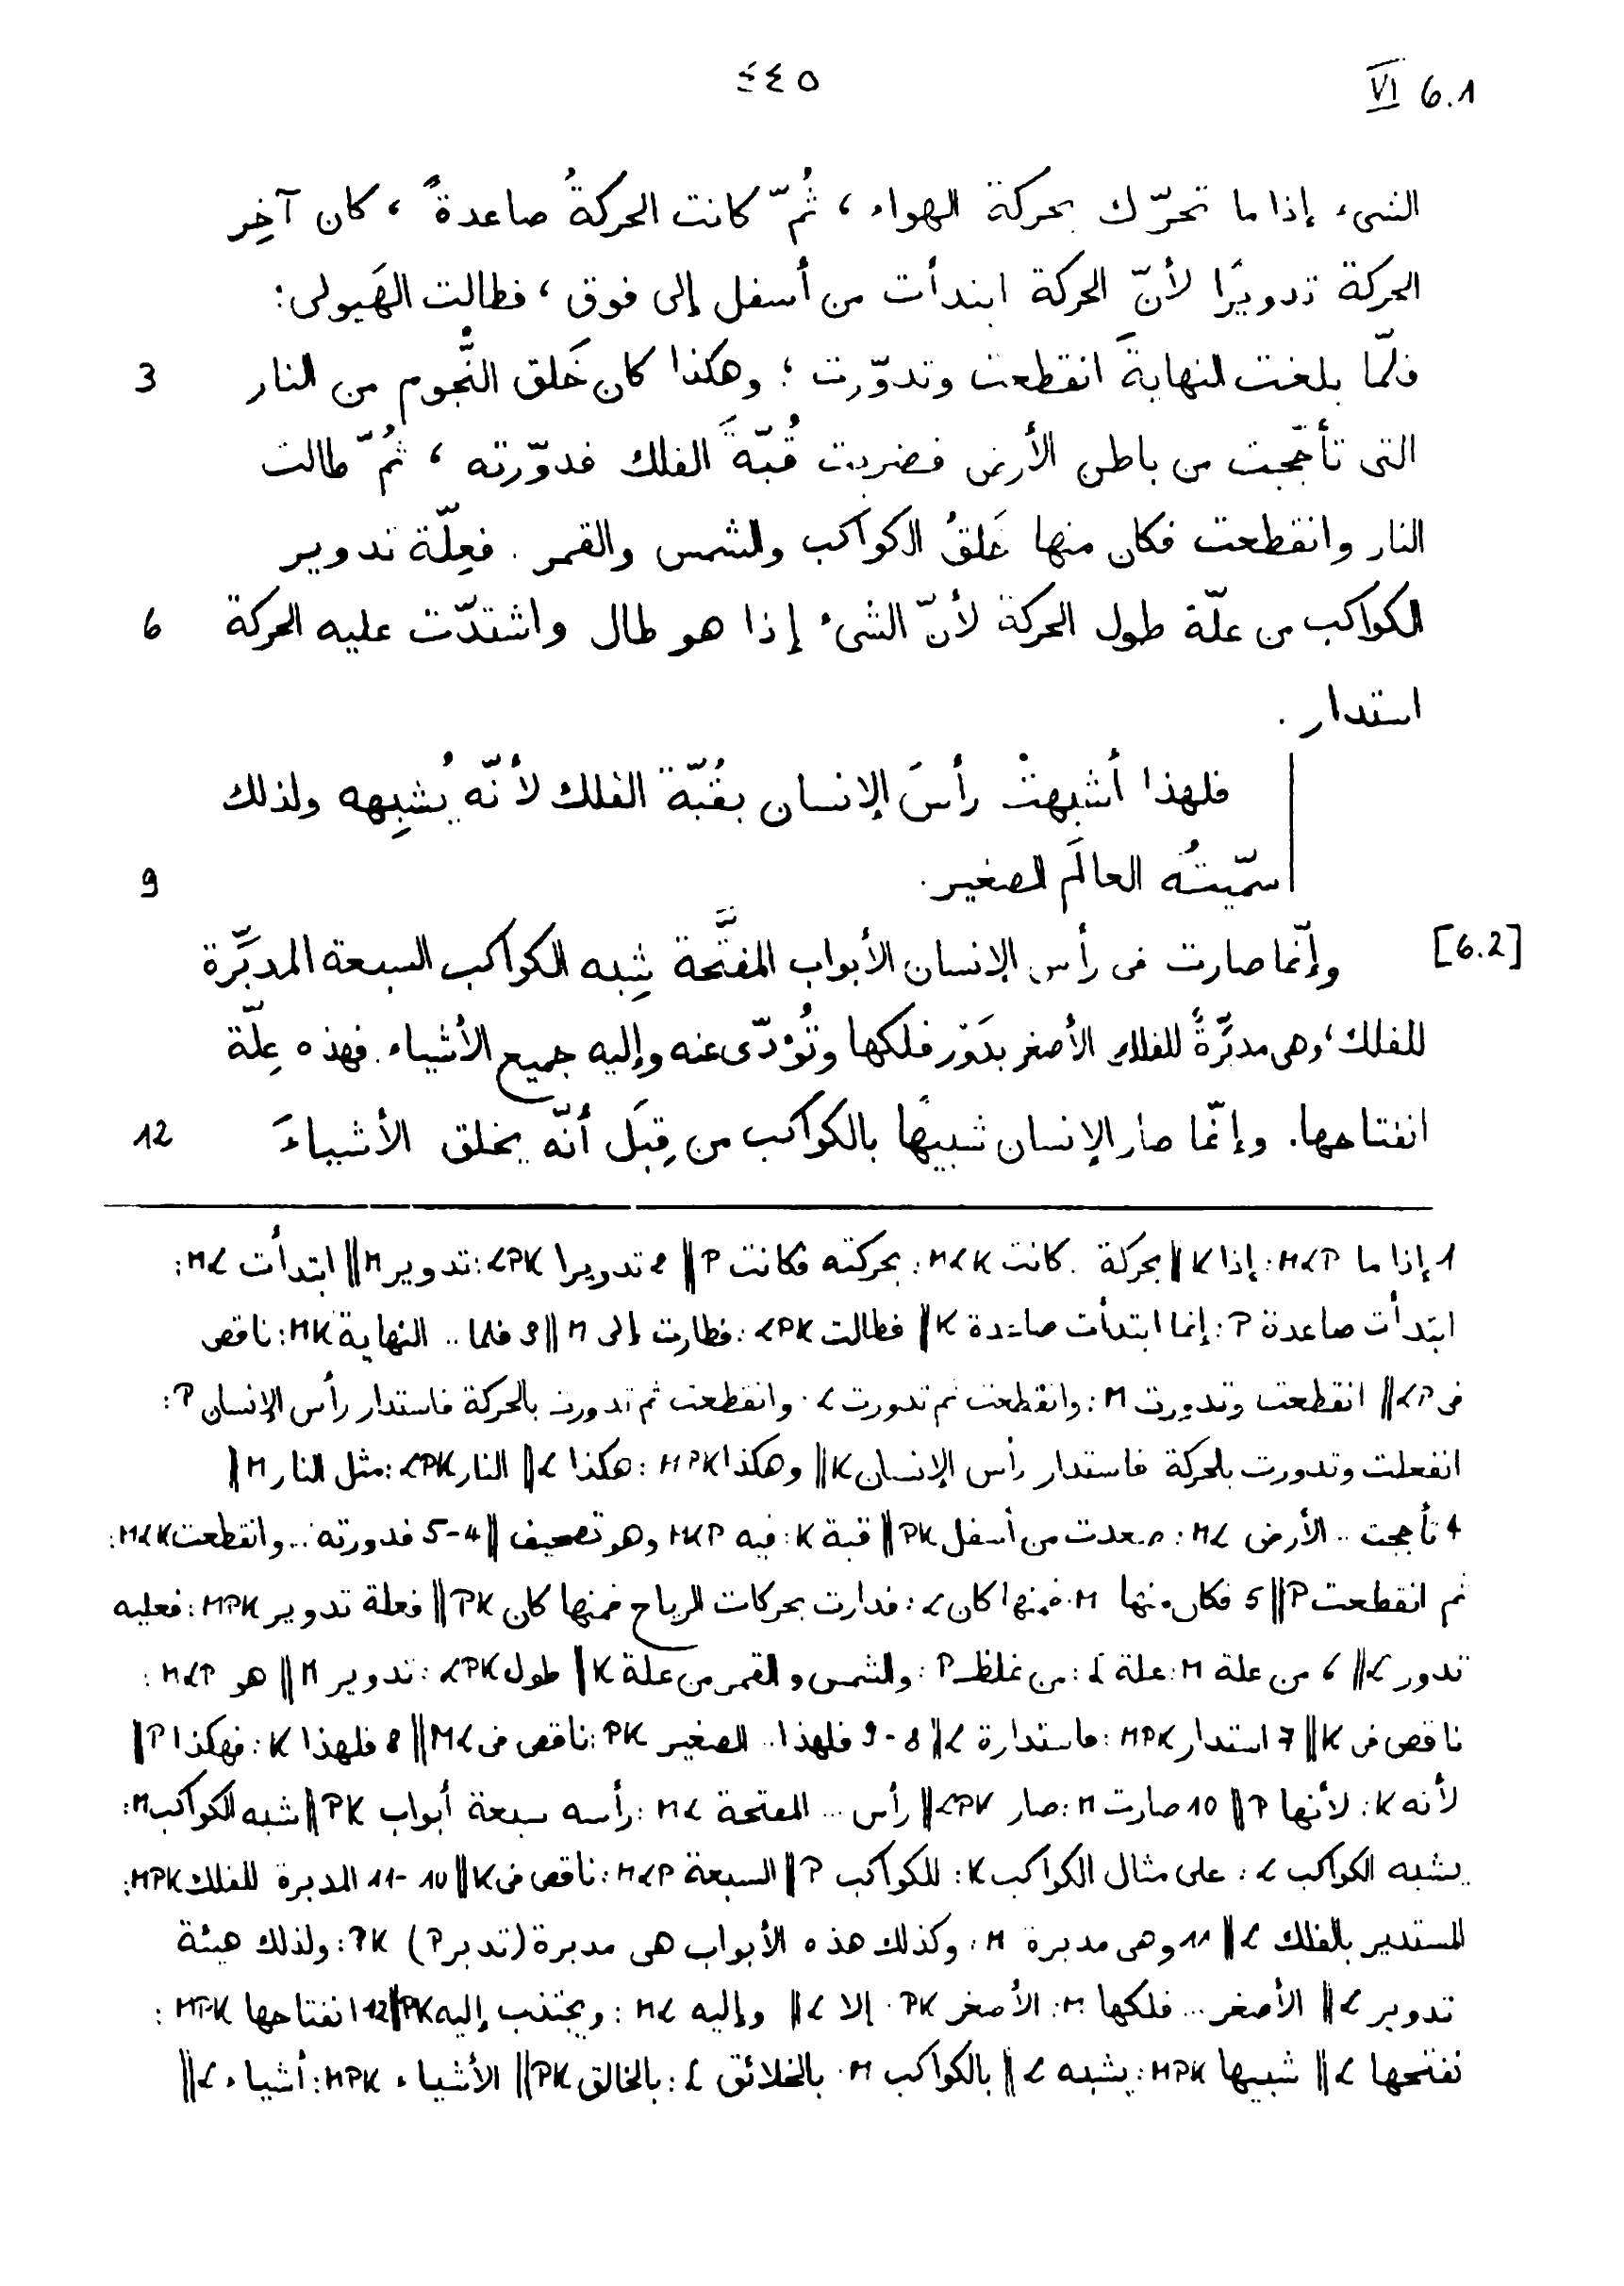 ٤٤٥ VI 6.1
الشىء إذا ما تحرّك بحركة الهواء ، ثُمّ كانت الحركةُ صاعدةً ، كان آخِر
الحركة تدويرًا لأنّ الحركة ابتدأت من أسفل إلى فوق ، فطالت الهَيولى :
فلمّا بلغت النهايةَ انقطعت وتدوّرت ؛ وهكذا كان خَلق النُّجوم من النار 3
التى تأجّجت من باطن الأرض فضربت قُبّةَ الفلك فدوّرته ، ثُمّ طالت
النار وانقطعت فكان منها خَلقُ الكواكب والشمس والقمر . فعِلّة تدوير
الكواكب من علّة طول الحركة لأنّ الشىء إذا هو طال واشتدّت عليه الحركة 6
استدار .
فلهذا أشبهتْ رأسَ الإنسان بقُبّة الفلك لأنّه يُشبِهه ولذلك
سمّيتُه العالَم الصغير . 9
[6.2] وإنّما صارت فى رأس الإنسان الأبواب المفتَّحة شِبه الكواكب السبعة المدبِّرة
للفلك ، وهى مدبِّرةً للفلك الأصغر بدَوْر فلكها وتُؤدّى عنه وإليه جميع الأشياء . فهذه عِلّة
انفتاحها . وإنّما صار الإنسان شبيهًا بالكواكب من قِبَل أنّه يخلق الأشياءَ 12
1 إذا ما MLP : إذا K ‖ بحركة .. كانت MLK : بحركته فكانت P ‖ 2 تدويرا LPK : تدوير M ‖ ابتدأت ML :
ابتدأت صاعدة P : إنما ابتدأت صاعدة K ‖ فطالت LPK : فطارت إلى M ‖ 3 فلما .. النهاية MK : ناقص
فى LP ‖ انقطعت وتدورت M : وانقطعت ثم تدورت L : وانقطعت ثم تدورت بالحركة فاستدار رأس الإنسان P :
انفعلت وتدورت بالحركة فاستدار رأس الإنسان K ‖ وهكذا MPK : هكذا L ‖ النار LPK : مثل النار M ‖
4 تأججت .. الأرض ML : صعدت من أسفل PK ‖ قبة K : فيه MLP وهو تصحيف ‖ 4-5 فدورته .. وانقطعت MLK :
ثم انقطعت P ‖ 5 فكان منها M : فمنها كان L : فدارت بحركات الرياح فمنها كان PK ‖ فعلة تدوير MPK : فعليه
تدور L ‖ 6 من علة M : علة L : من غلظ P : والشمس والقمر من علة K ‖ طول LPK : تدوير M ‖ هو MLP :
ناقص فى K ‖ 7 استدار MPK : فاستدارة L ‖ 8-9 فلهذا .. الصغير PK : ناقص فى ML ‖ 8 فلهذا K : فهكذا P ‖
لأنه K : لأنها P ‖ 10 صارت M : صار LPK ‖ رأس ... المفتحة ML : رأسه سبعة أبواب PK ‖ شبه الكواكب M :
يشبه الكواكب L : على مثال الكواكب K : للكواكب P ‖ السبعة MLP : ناقص فى K ‖ 10-11 المدبرة للفلك MPK :
المستدير بالفلك L ‖ 11 وهى مدبرة M : وكذلك هذه الأبواب هى مدبرة (تدبر P) PK : ولذلك هيئة
تدوير L ‖ الأصغر ... فلكها M : الأصغر PK : إلا L ‖ وإليه ML : ويجتذب إليه PK ‖ 12 انفتاحها MPK :
تفتحها L ‖ شبيها MPK : يشبه L ‖ بالكواكب M : بالخلائق L : بالخالق PK ‖ الأشياء MPK : أشياء L ‖